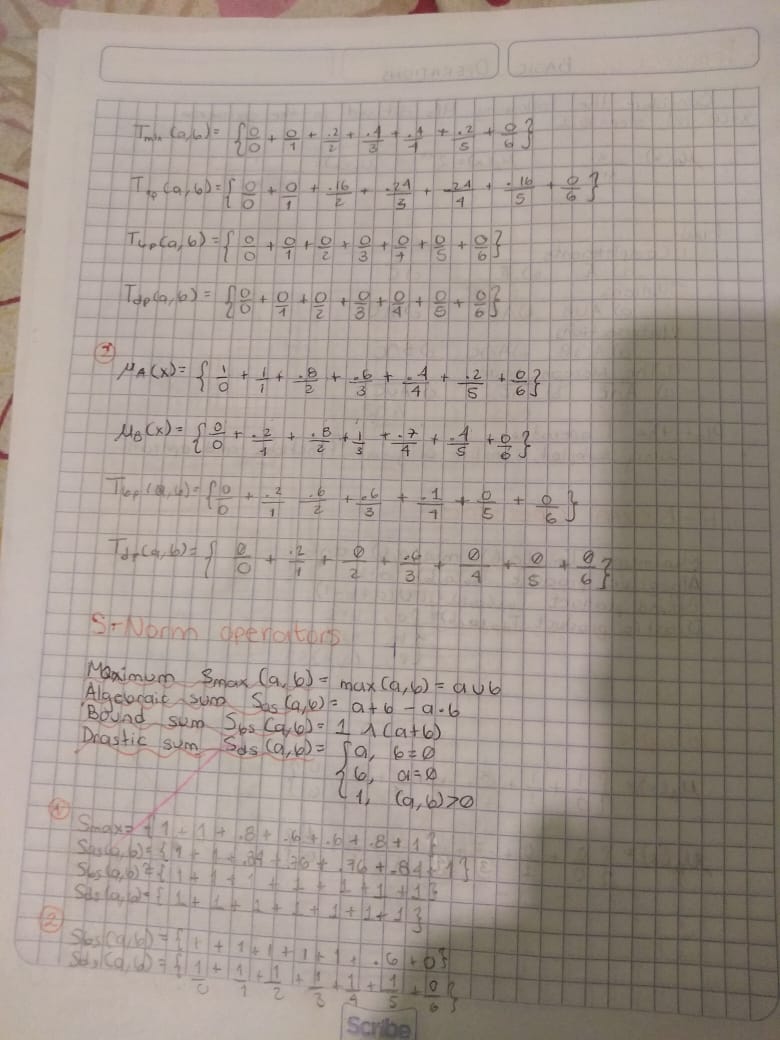 T_min(a,b) = {0/0 + 0/1 + .2/2 + .4/3 + .4/4 + .2/5 + 0/6}
T_ap(a,b) = {0/0 + 0/1 + .16/2 + .24/3 + .24/4 + .16/5 + 0/6}
T_bp(a,b) = {0/0 + 0/1 + 0/2 + 0/3 + 0/4 + 0/5 + 0/6}
T_dp(a,b) = {0/0 + 0/1 + 0/2 + 0/3 + 0/4 + 0/5 + 0/6}
μA(x) = {1/0 + 1/1 + .8/2 + .6/3 + .4/4 + .2/5 + 0/6}
μB(x) = {0/0 + .2/1 + .8/2 + 1/3 + .7/4 + .4/5 + 0/6}
T_bp(a,b) = {0/0 + .2/1 .6/2 + .6/3 + .1/4 + 0/5 + 0/6}
T_dp(a,b) = { 0/0 + .2/1 + 0/2 + .6/3 + 0/4 + 0/5 + 0/6}
S-Norm operators
Maximum Smax (a,b) = max(a,b) = a∪b
Algebraic sum Sas (a,b) = a+b - a·b
Bound sum Sbs (a,b) = 1 ∧ (a+b)
Drastic sum Sds (a,b) = { a, b=0
b, a=0
1, (a,b)>0
① Smax = {1 + 1 + .8 + .6 + .6 + .8 + 1}
Sas(a,b) = {1 + 1 + .84 + .76 + .76 + .84 + 1}
Sbs(a,b) = {1 + 1 + 1 + 1 + 1 + 1 + 1}
Sds(a,b) = {1 + 1 + 1 + 1 + 1 + 1 + 1}
② Sbs(a,b) = {1 + 1 + 1 + 1 + 1 + .6 + 0}
Sds(a,b) = {1/0 + 1/1 + 1/2 + 1/3 + 1/4 + 1/5 + 0/6}
Scribe